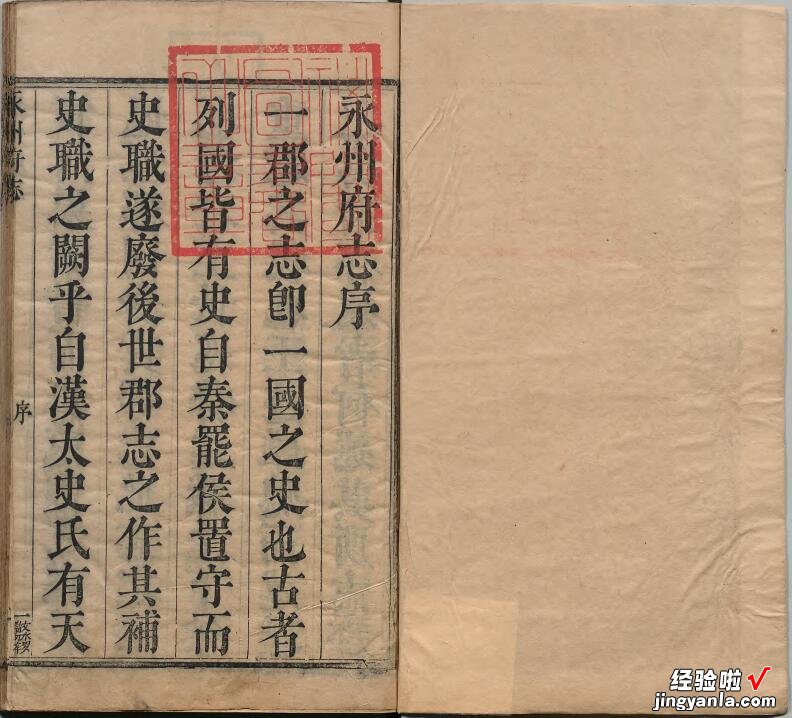 永州府志序
一郡之志卽一國之史也古者
列國皆有史自秦罷侯置守而
史職遂廢後世郡志之作其補
史職之闕乎自漢太史氏有天
永州府志
序
一
经验啦√
jingyanla.com